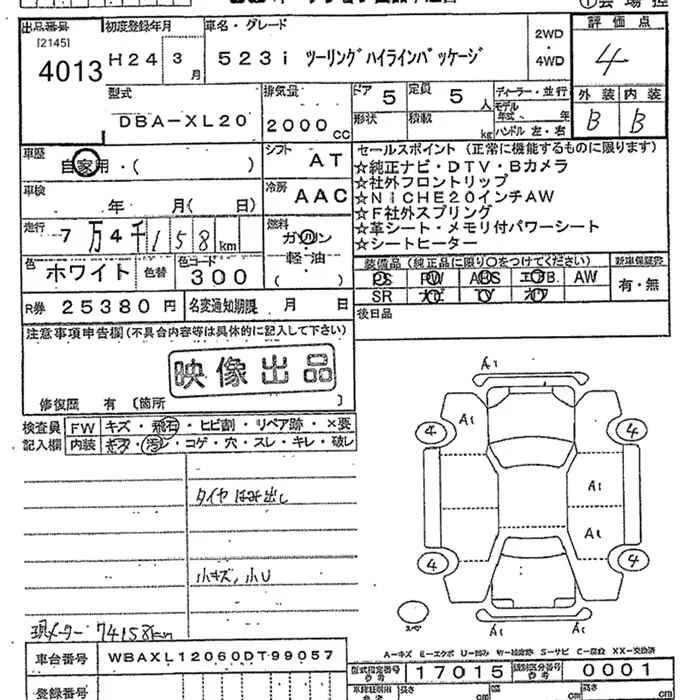 出品番号 [2145] 4013
初度登録年月 H24 3月
車名・グレード 523i ツーリングハイラインパッケージ
2WD・4WD
評価点 4
外装 B 内装 B
型式 DBA-XL20
排気量 2000cc
ドア 5 定員 5人
形状 積載 kg
ディーラー・並行
モデル年式 年
ハンドル 左・右
車歴 自家用・( )
シフト AT
車検 年 月( 日)
冷房 AAC
走行 7万4千158km
燃料 ガソリン 軽油 ( )
色 ホワイト 色替 色コード 300
R券 25380円 名変通知期限 月 日
セールスポイント (正常に機能するものに限ります)
☆純正ナビ・DTV・Bカメラ
☆社外フロントリップ
☆NICHE20インチAW
☆F社外スプリング
☆革シート・メモリ付パワーシート
☆シートヒーター
装備品 (純正品に限り○をつけてください) 新車保証書
PS PW ABS エアB. AW 有・無
SR ナビ TV
後日品
注意事項申告欄(不具合内容等は具体的に記入して下さい)
映像出品
修復歴 有 〔箇所 〕
検査員記入欄
FW キズ・飛石・ヒビ割・リペア跡・×要
内装 キズ・汚レ・コゲ・穴・スレ・キレ・破レ
タイヤはみ出し
小キズ、小U
現メーター 74158km
A1
A1
4 4
A1
A1
4 4
スペア
A1
A-キズ E-エクボ U-凹み W-補修跡 S-サビ C-腐食 XX-交換済
車台番号 WBAXL12060DT99057
型式指定番号 参考 17015 類別区分番号 参考 0001
登録番号
長さ cm 幅 cm 高さ cm